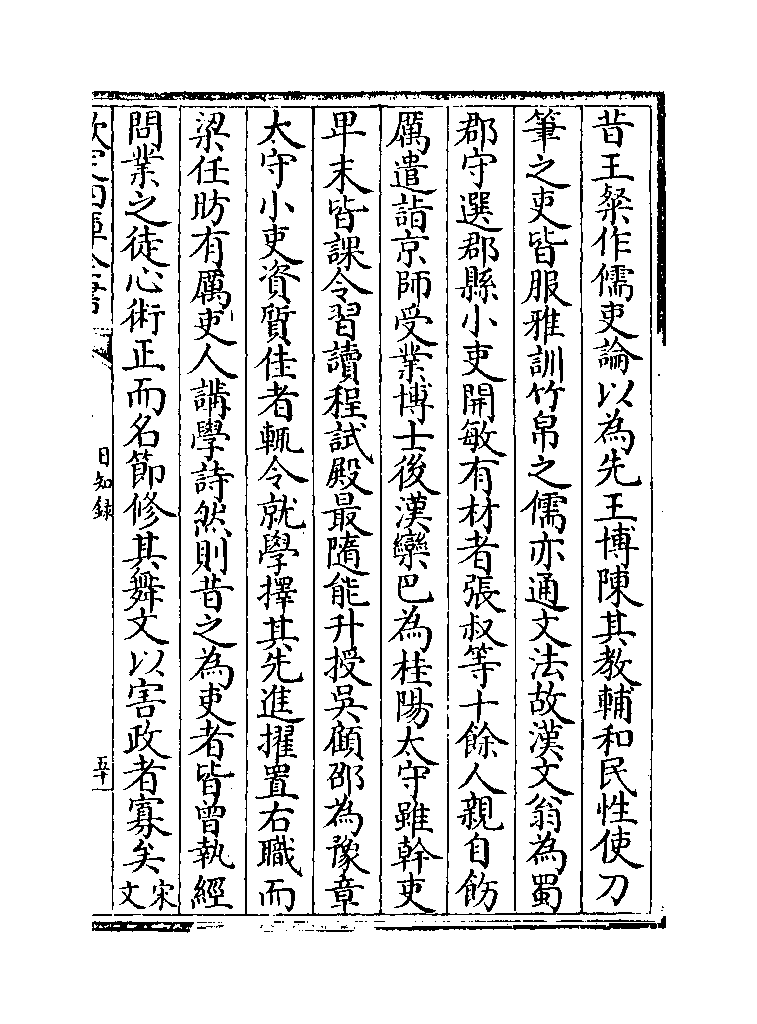 昔王粲作儒吏論以為先王博陳其教輔和民性使刀
筆之吏皆服雅訓竹帛之儒亦通文法故漢文翁為蜀
郡守選郡縣小吏開敏有材者張叔等十餘人親自飭
厲遣詣京師受業博士後漢欒巴為桂陽太守雖幹吏
卑末皆課令習讀程試殿最隨能升授吳顧邵為豫章
太守小吏資質佳者輒令就學擇其先進擢置右職而
梁任昉有厲吏人講學詩然則昔之為吏者皆曾執經
問業之徒心術正而名節修其舞文以害政者寡矣宋文
欽定四庫全書
日知錄
五十